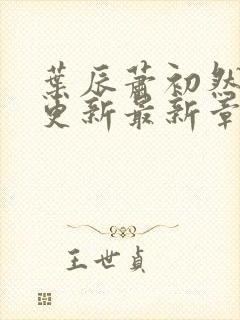 葉辰蕭初然
更新最新章
王世貞